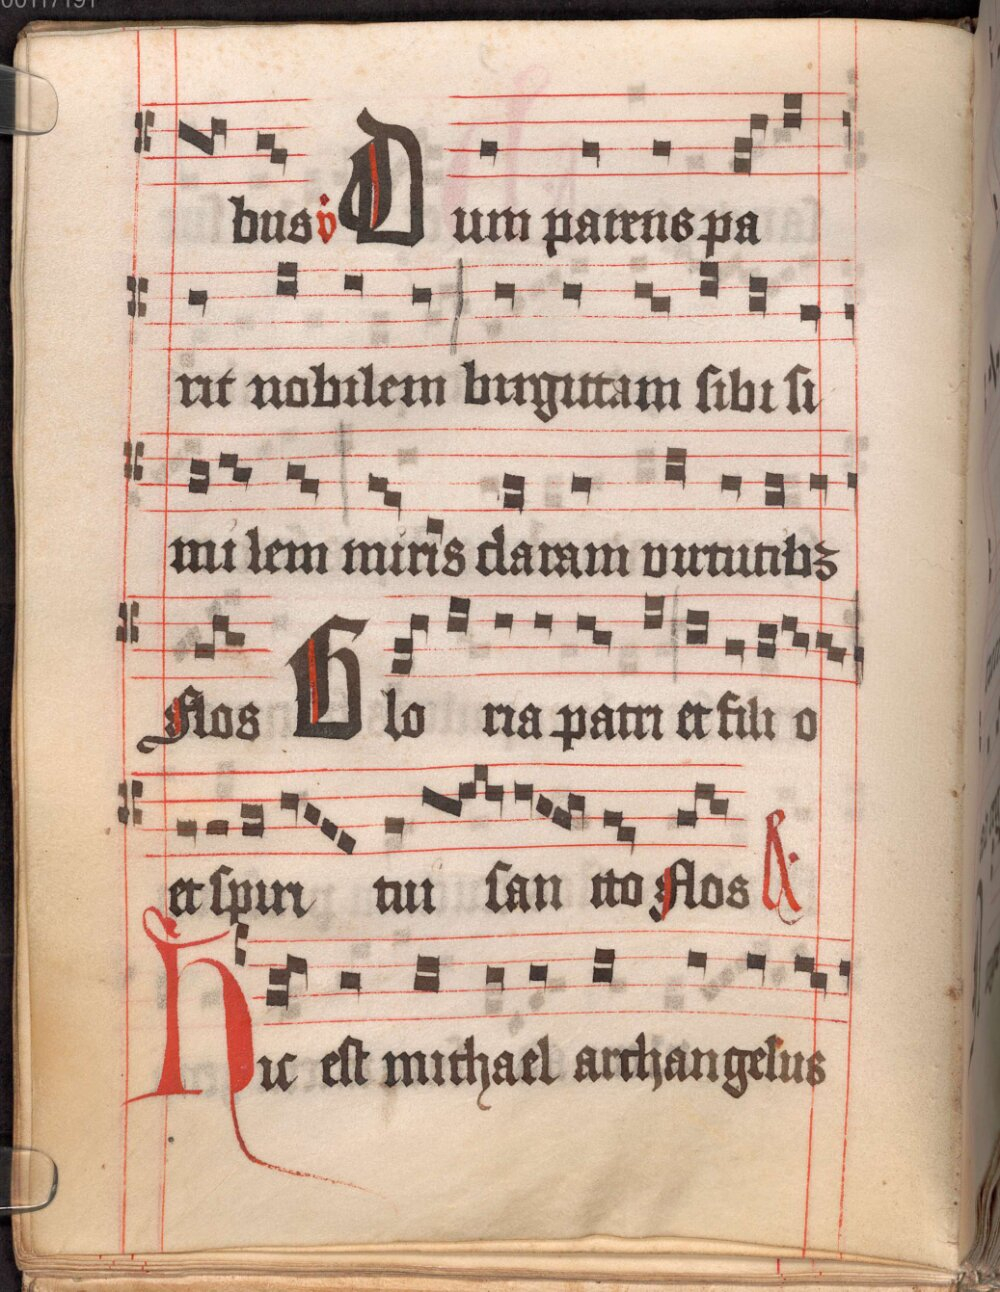 bus v Dum patens pa
rit nobilem birgittam sibi si
mi lem miris claram virtutibꝫ
Flos Glo ria patri et filio
et spiri tui san cto Flos R
Hic est michael archangelus